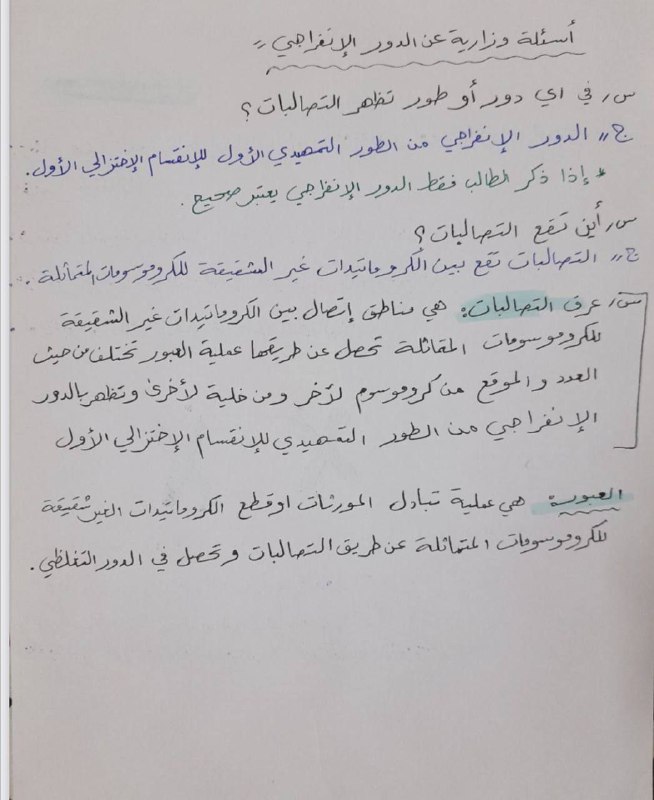 أسئلة وزارية عن الدور الإنفراجي //
س/ في اي دور أو طور تظهر التصالبات؟
ج// الدور الإنفراجي من الطور التمهيدي الأول للإنقسام الإختزالي الأول.
* إذا ذكر الطالب فقط الدور الإنفراجي يعتبر صحيح.
س/ أين تقع التصالبات؟
ج// التصالبات تقع بين الكروماتيدات غير الشقيقة للكروموسومات المتماثلة.
س/ عرف التصالبات: هي مناطق إتصال بين الكروماتيدات غير الشقيقة
للكروموسومات المتماثلة تحصل عن طريقها عملية العبور تختلف من حيث
العدد والموقع من كروموسوم لآخر ومن خلية لأخرى وتظهر بالدور
الإنفراجي من الطور التمهيدي للإنقسام الإختزالي الأول
العبور: هي عملية تبادل المورثات او قطع الكروماتيدات الغير شقيقة
للكروموسومات المتماثلة عن طريق التصالبات وتحصل في الدور التغلظي.